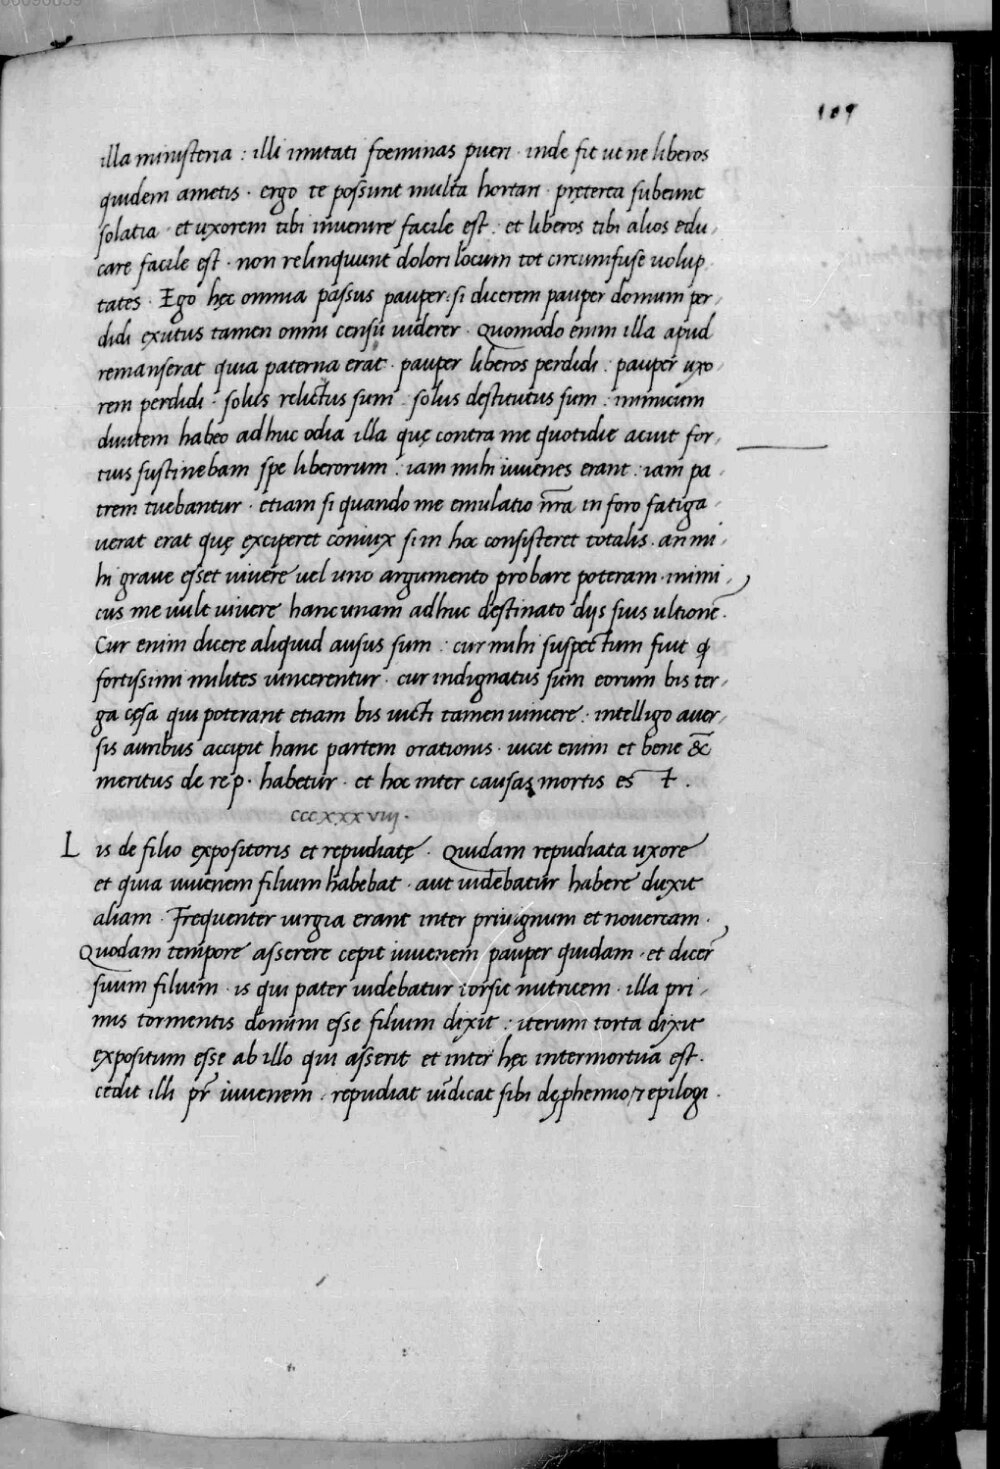 109
illa ministeria : illi imitati foeminas pueri · inde fit ut ne liberos
quidem ametis · ergo te possunt multa hortari · pręterea subeunt
solatia · et uxorem tibi invenire facile est · et liberos tibi alios edu,
care facile est · non relinquunt dolori locum tot circumfuse volup,
tates · Ego hęc omnia passus pauper : si dicerem pauper domum per,
didi exutus tamen omni censu viderer · Quomodo enim illa apud
remanserat quia paterna erat · pauper liberos perdidi : pauper uxo,
rem perdidi · solus relictus sum · solus destitutus sum : inimicum
divitem habeo adhuc odia illa quę contra me quotidie acuit for,
tius sustinebam spe liberorum : iam mihi iuvenes erant : iam pa,
trem tuebantur · etiam si quando me emulatio nr̄a in foro fatiga,
verat erat quę exciperet coniux si in hoc consisteret totalis · an mi,
hi grave esset vivere vel uno argumento probare poteram · inimi,
cus me vult vivere hanc unam adhuc destinato dijs suis ultionē.
Cur enim dicere aliquid ausus sum : cur mihi suspectum fuit q̄
fortissimi milites vincerentur · cur indignatus sum eorum bis ter,
ga cęsa qui poterant etiam bis victi tamen vincere : intelligo aver,
sis auribus accipit hanc partem orationis · vicit enim et bene &c̄
meritus de re p · habetur · et hoc inter causas mortis es t̄ .
cccxxxviij.
Lis de filio expositoris et repudiatę · Quidam repudiata uxore
et quia iuvenem filium habebat · aut videbatur habere duxit
aliam · Frequenter iurgia erant inter privignum et novercam ·
Quodam tempore asserere cepit iuvenem pauper quidam · et dicer̄
suum filium · is qui pater videbatur torsit nutricem · illa pri,
mis tormentis domini esse filium dixit : iterum torta dixit
expositum esse ab illo qui asserit et inter hęc intermortua est ·
cedit illi pr̄ iuvenem · repudiat vīdicat sibi dęphenno ⁊ epilogi ·